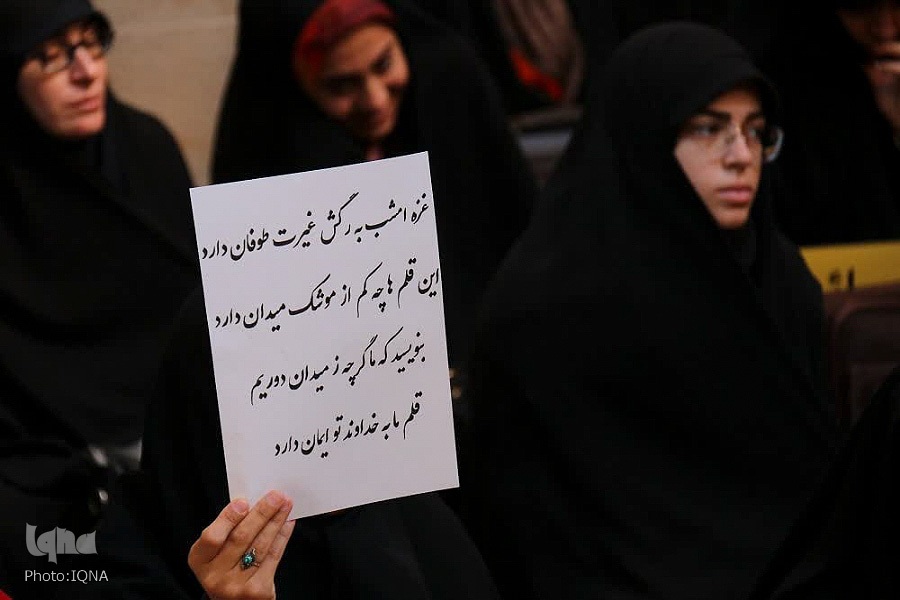 غزه امشب به رگش غیرت طوفان دارد
این قلم ها چه کم از موشک میدان دارد
بنویسید که ما گرچه ز میدان دوریم
قلم ما به خداوند تو ایمان دارد
iqna
Photo:IQNA